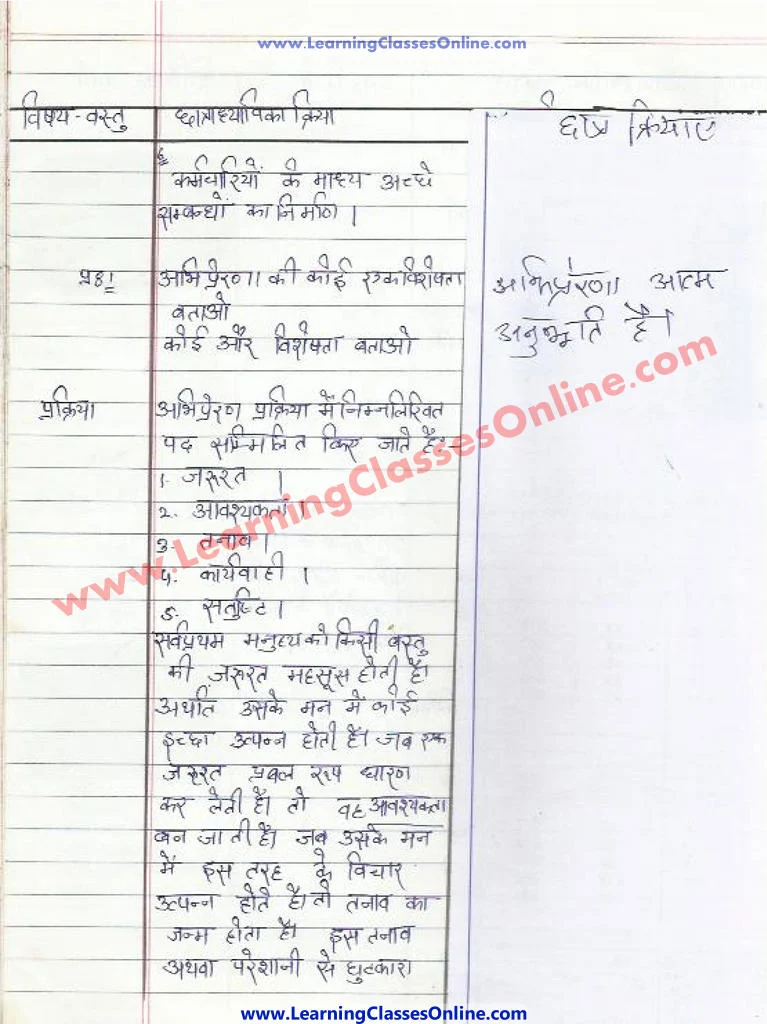 www.LearningClassesOnline.com
विषय-वस्तु छात्राध्यापिका क्रिया छात्र क्रियाएं
कर्मचारियों के माध्य अच्छे
सम्बन्धों का निर्माण।
प्रश्न अभिप्रेरणा की कोई एक विशेषता
बताओ
कोई और विशेषता बताओ
अभिप्रेरणा आत्म
अनुभूति है।
प्रक्रिया अभिप्रेरण प्रक्रिया में निम्नलिखित
पद सम्मिलित किए जाते हैं:-
1. जरूरत।
2. आवश्यकता।
3. तनाव।
4. कार्यवाही।
5. सतुष्टि।
सर्वप्रथम मनुष्य को किसी वस्तु
की जरूरत महसूस होती है।
अर्थात उसके मन में कोई
इच्छा उत्पन्न होती है। जब एक
जरूरत प्रबल रूप धारण
कर लेती है। तो वह आवश्यकता
बन जाती है। जब उसके मन
में इस तरह के विचार
उत्पन्न होते है। तो तनाव का
जन्म होता है। इस तनाव
अथवा परेशानी से छुटकारा
www.LearningClassesOnline.com
www.LearningClassesOnline.com